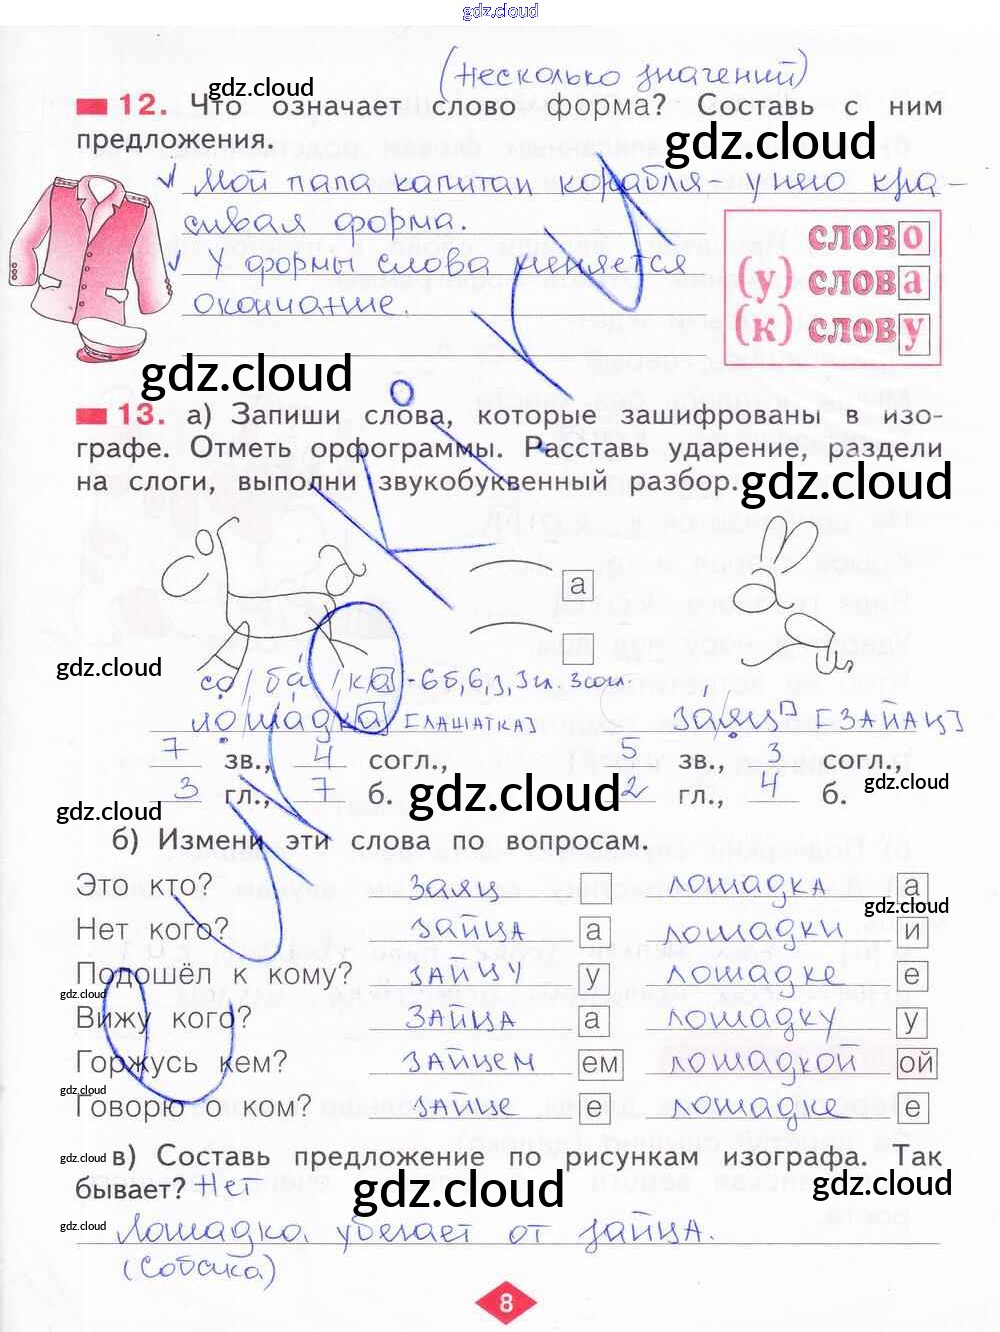 gdz.cloud
(несколько значений)
gdz.cloud
12. Что означает слово форма? Составь с ним
предложения.
gdz.cloud
Мой папа капитан корабля у него кра-
сивая форма.
У формы слова меняется
окончание.
слово
(у) слова
(к) слову
gdz.cloud
13. а) Запиши слова, которые зашифрованы в изо-
графе. Отметь орфограммы. Расставь ударение, раздели
на слоги, выполни звукобуквенный разбор.
gdz.cloud
а
gdz.cloud
со/ба/ка - 6б, 6з, 3гл. 3согл.
лошадка [лашатка] заяц [зайац]
7 зв., 4 согл., 5 зв., 3 согл.,
3 гл., 7 б. 2 гл., 4 б.
gdz.cloud
gdz.cloud
gdz.cloud
б) Измени эти слова по вопросам.
Это кто? заяц лошадка а
gdz.cloud
Нет кого? зайца а лошадки и
Подошёл к кому? зайцу у лошадке е
gdz.cloud
Вижу кого? зайца а лошадку у
Горжусь кем? зайцем ем лошадкой ой
gdz.cloud
Говорю о ком? зайце е лошадке е
gdz.cloud
в) Составь предложение по рисункам изографа. Так
бывает? Нет
gdz.cloud
gdz.cloud
gdz.cloud
Лошадка убегает от зайца.
(собака)
8